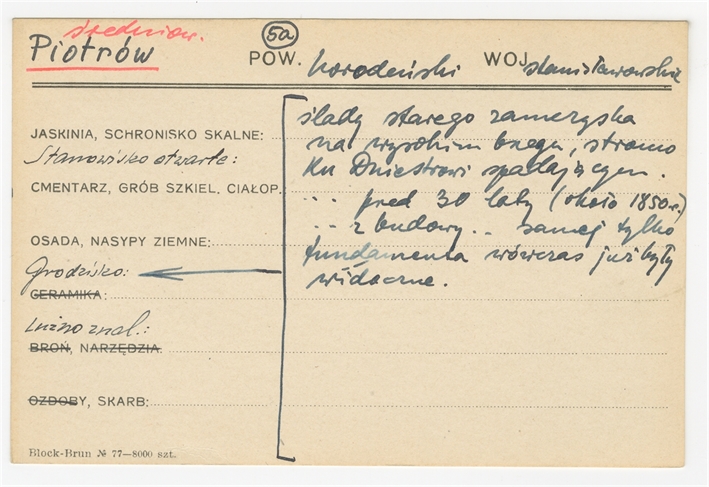 średniow.
Piotrów
5a
POW. horodeński WOJ. stanisławowskie
ślady starego zameczyska
JASKINIA, SCHRONISKO SKALNE:
na wysokim brzegu, stromo
Stanowisko otwarte:
ku Dniestrowi spadającym.
CMENTARZ, GRÓB SZKIEL. CIAŁOP.:
... przed 30 laty (około 1850r.)
... z budowy .. samej tylko
OSADA, NASYPY ZIEMNE:
fundamenta wówczas już były
Grodzisko:
widoczne.
CERAMIKA:
Luźno znal.:
BROŃ, NARZĘDZIA:
OZDOBY, SKARB:
Block-Brun № 77—8000 szt.